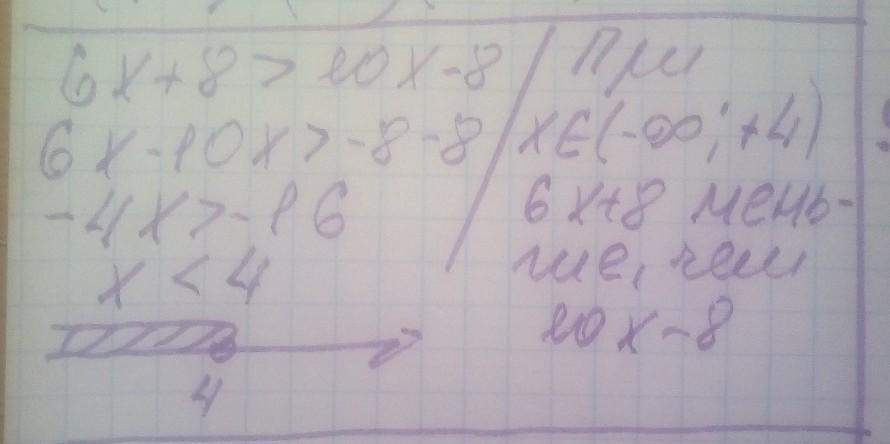 6x+8 > 10x-8
6x-10x>-8-8
-4x>-16
x < 4
4
При
x∈(-∞;+4)
6x+8 мень-
ше, чем
10x-8